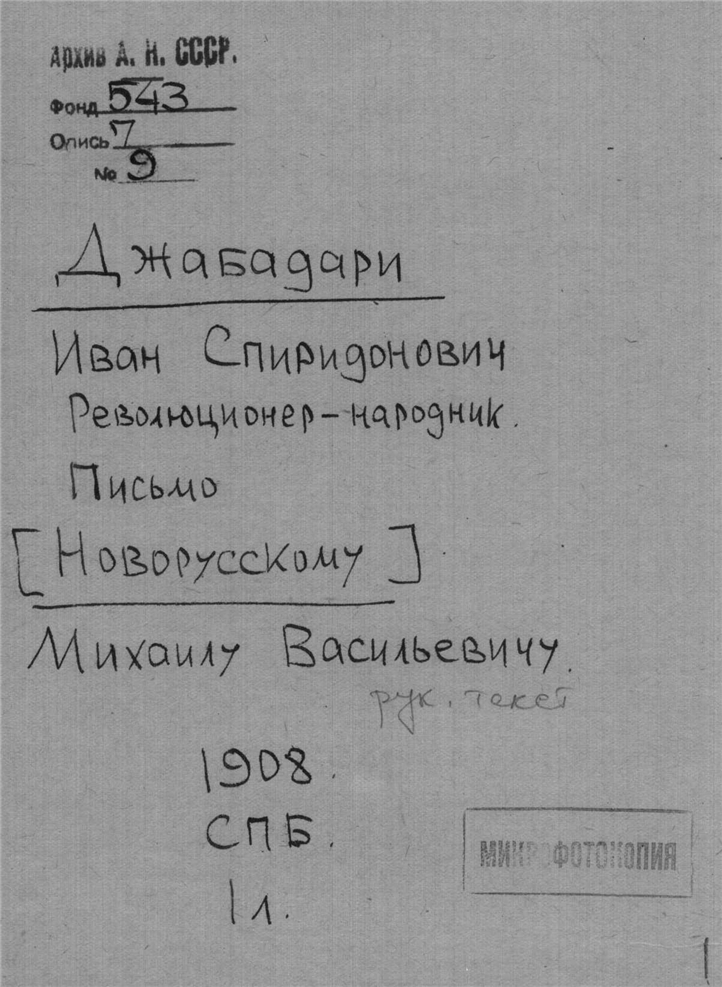 Архив А. Н. СССР.
Фонд 543
Опись 7
№ 9
Джабадари
Иван Спиридонович
Революционер-народник.
Письмо
[Новорусскому]
Михаилу Васильевичу.
рук. текст
1908.
СПБ.
1 л.
МИКРОФОТОКОПИЯ
1